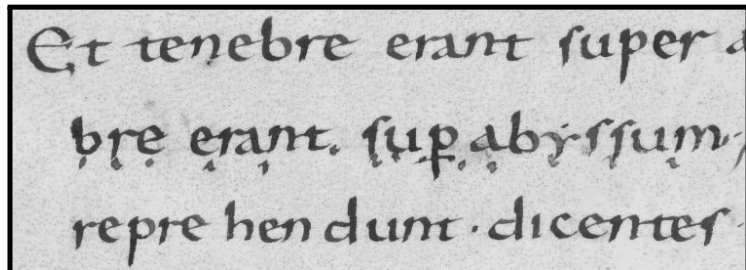 Et tenebre erant super a
bre erant. sup abyssum.
reprehendunt · dicentes ·